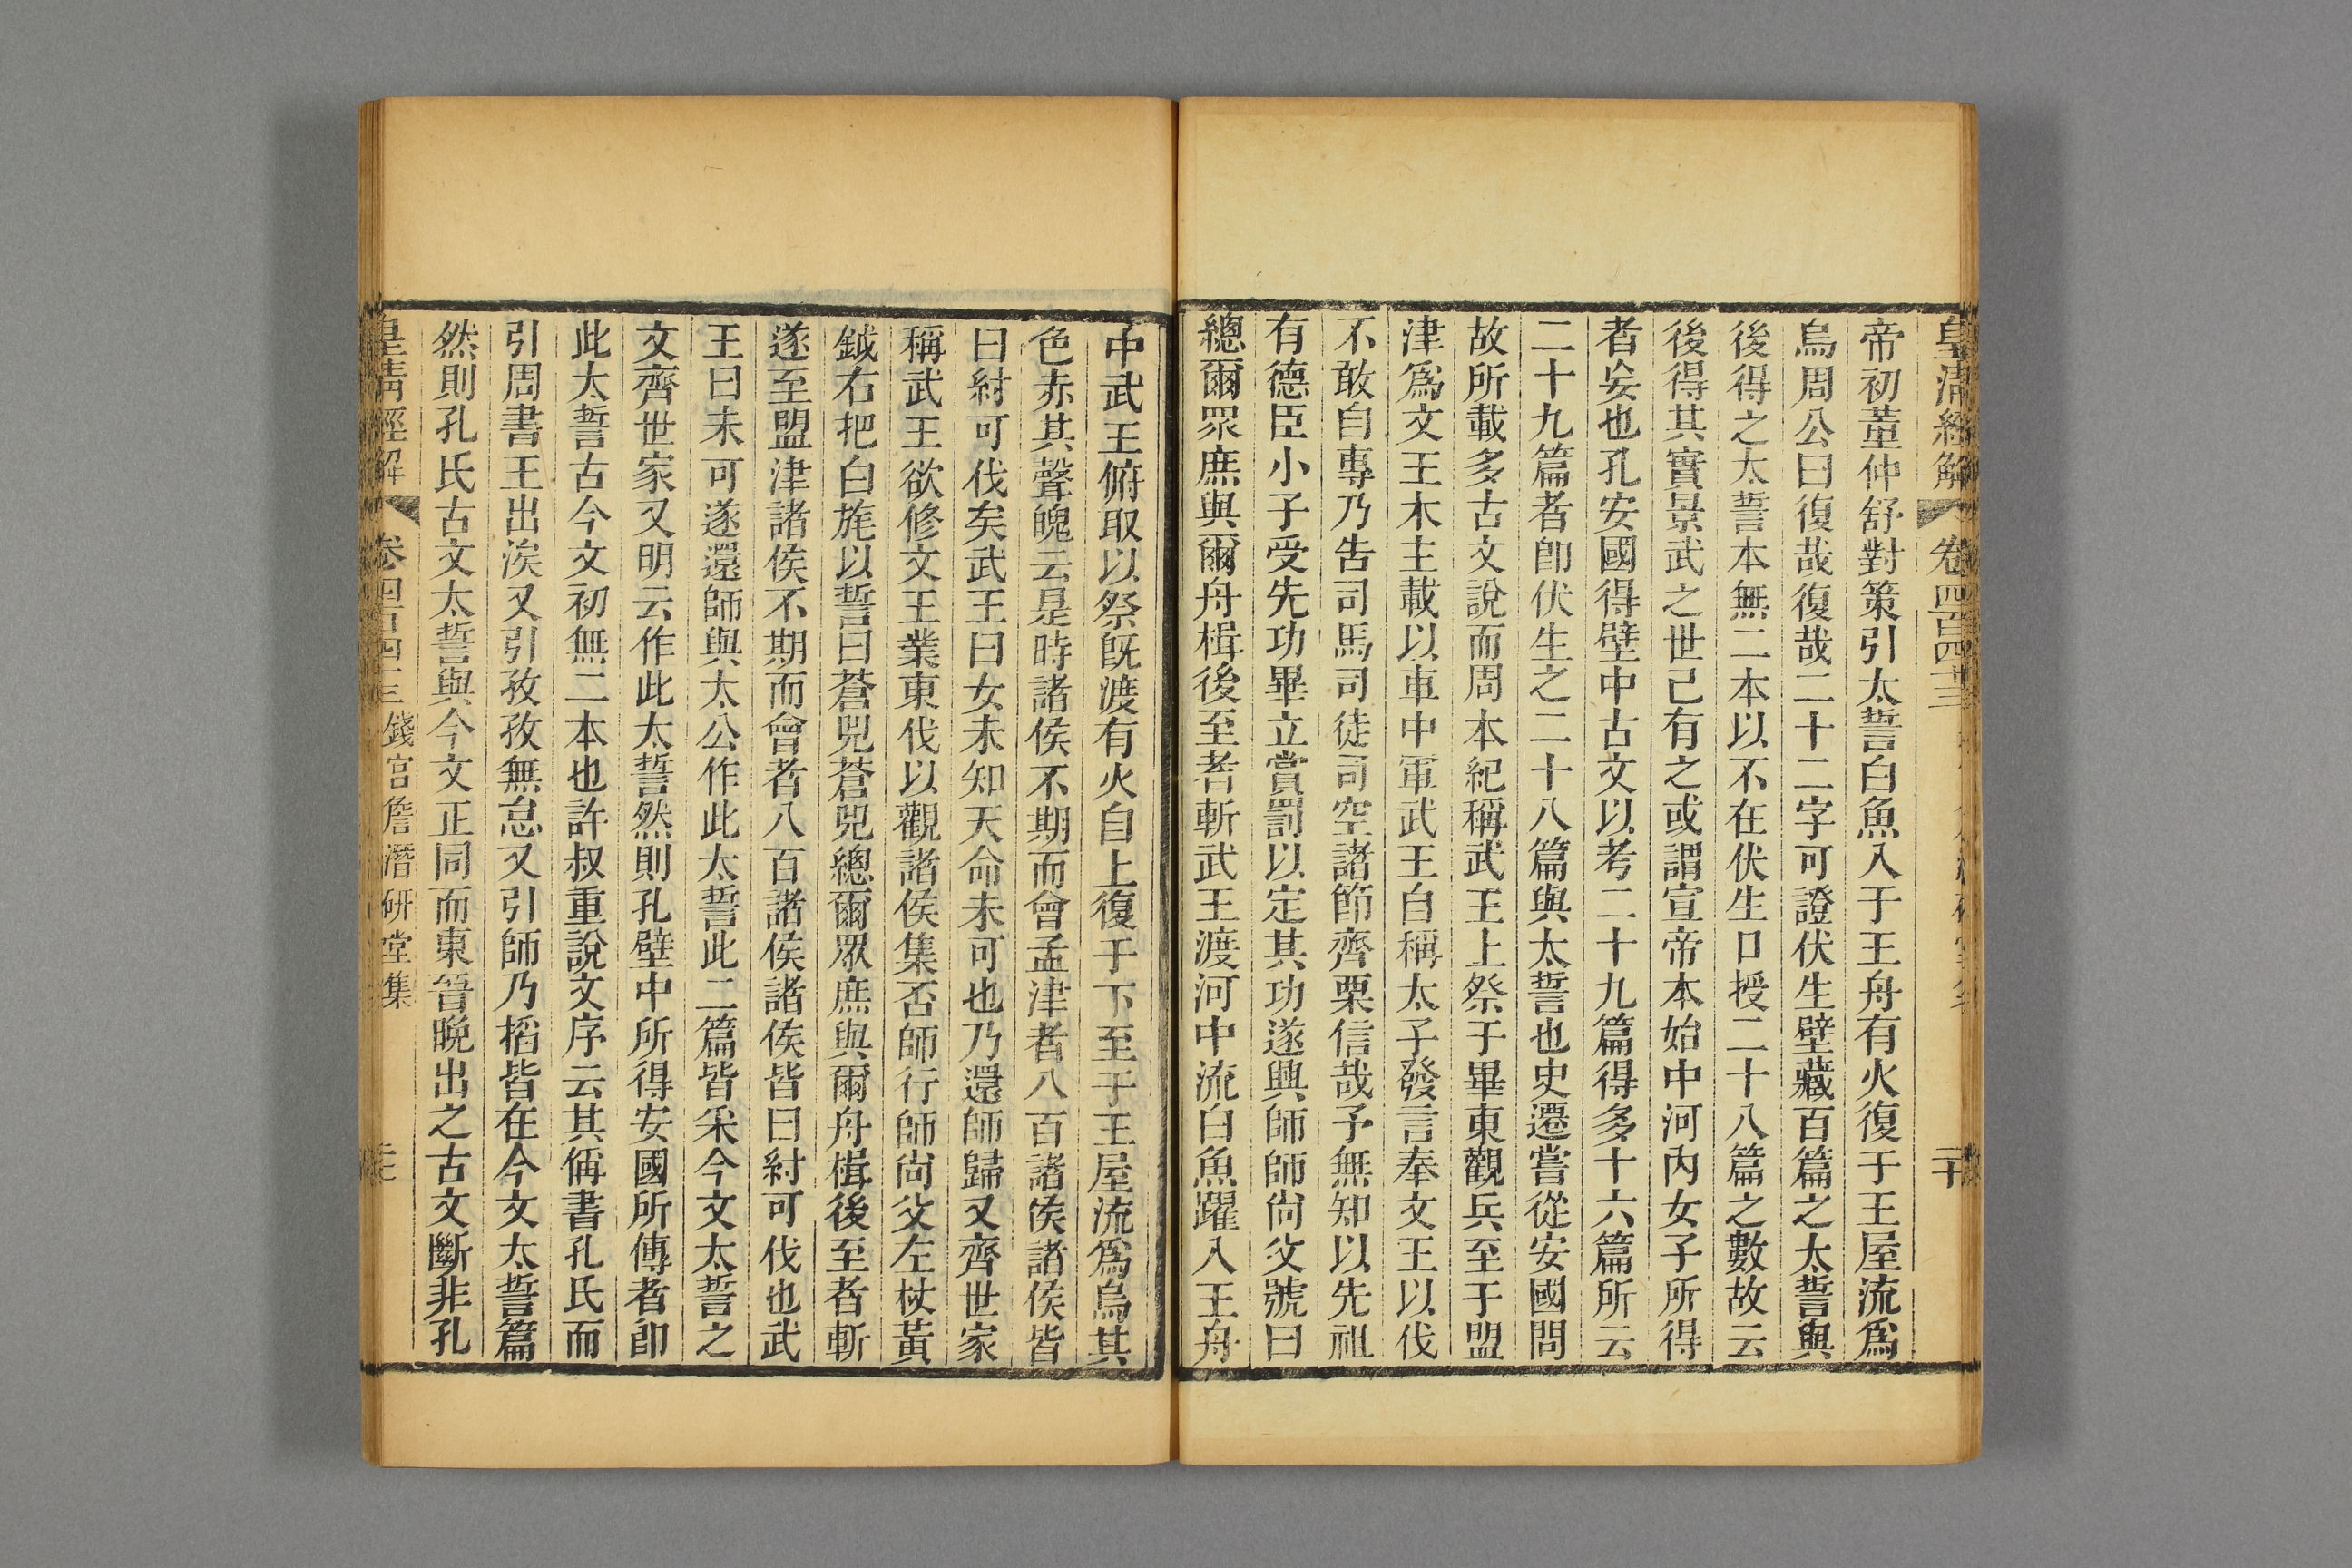 皇清經解 卷四百四十三
二十
帝初董仲舒對策引太誓白魚入于王舟有火復于王屋流爲
烏周公曰復哉復哉二十二字可證伏生壁藏百篇之太誓與
後得之太誓本無二本以不在伏生口授二十八篇之數故云
後得其實景武之世已有之或謂宣帝本始中河內女子所得
者妄也孔安國得壁中古文以考二十九篇得多十六篇所云
二十九篇者卽伏生之二十八篇與太誓也史遷嘗從安國問
故所載多古文說而周本紀稱武王上祭于畢東觀兵至于盟
津爲文王木主載以車中軍武王自稱太子發言奉文王以伐
不敢自專乃告司馬司徒司空諸節齊栗信哉予無知以先祖
有德臣小子受先功畢立賞罰以定其功遂興師師尙父號曰
總爾眾庶與爾舟楫後至者斬武王渡河中流白魚躍入王舟
中武王俯取以祭旣渡有火自上復于下至于王屋流爲烏其
色赤其聲魄云是時諸侯不期而會孟津者八百諸侯諸侯皆
曰紂可伐矣武王曰女未知天命未可也乃還師歸又齊世家
稱武王欲修文王業東伐以觀諸侯集否師行師尙父左杖黃
鉞右把白旄以誓曰蒼兕蒼兕總爾眾庶與爾舟楫後至者斬
遂至盟津諸侯不期而會者八百諸侯諸侯皆曰紂可伐也武
王曰未可遂還師與太公作此太誓此二篇皆采今文太誓之
文齊世家又明云作此太誓然則孔壁中所得安國所傳者卽
此太誓古今文初無二本也許叔重說文序云其偁書孔氏而
引周書王出涘又引孜孜無怠又引師乃搯皆在今文太誓篇
然則孔氏古文太誓與今文正同而東晉晚出之古文斷非孔
皇清經解 卷四百四十三 錢宮詹潛研堂集